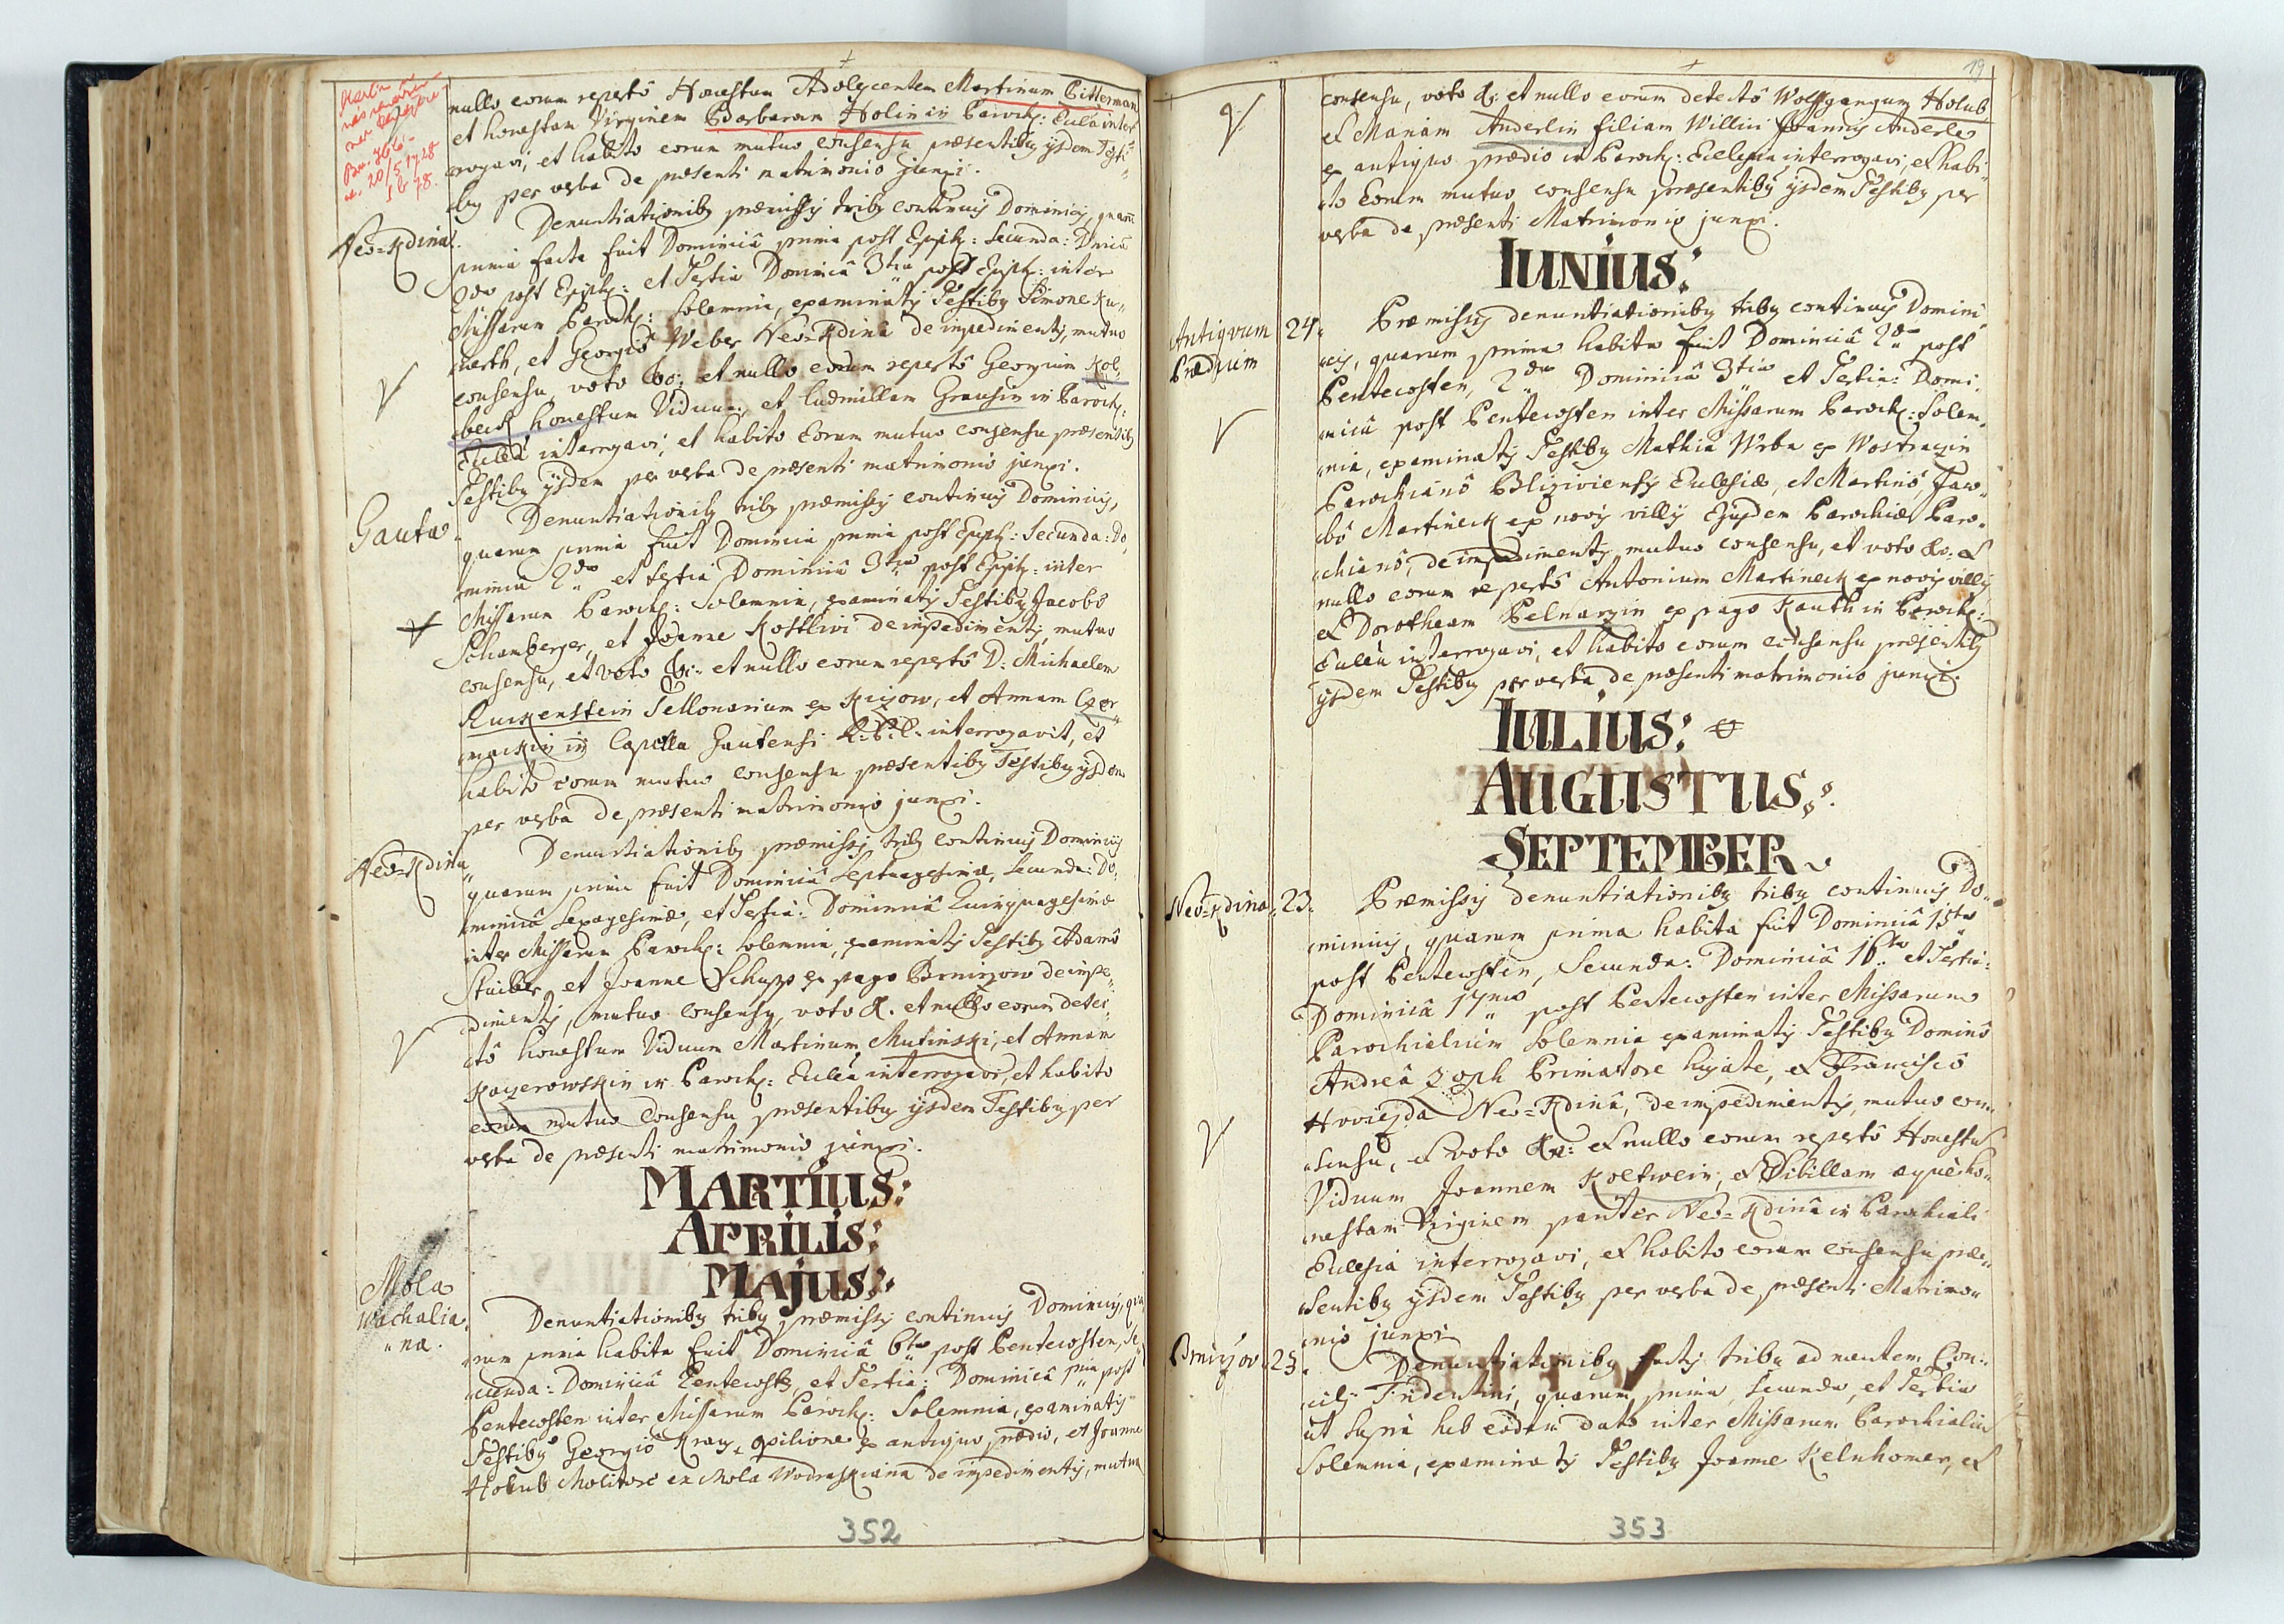 nullo eorum repertô Honestum Adolescentem Martinum Bitterman
et honestam Virginem Barbaram Holinin in Paroch: Eccla inter
rogavi, et habito eorum mutuo consensu præsentibg ysdem Testi
bg per verba de præsenti matrimonio junxi.
Neo=Kdina
Denuntiationibg præmissis tribg continuis Dominicis, quarum
prima facta fuit Dominicâ prima post Epiph: Secunda: Dnicâ
2da post Epiph: et Tertia Dominicâ 3tia post Epiph: inter
Missarum Paroch: Solemnia, examinatis Testibg Simone Ku„
et Georgiô Weber Neo=Kdina de impedimentis, mutuo
consensu, voto &c: et nullo eorum repertô Georgium Kol„
beck honestum Viduum, et Ludmillam Grausin in Paroch:
Eccla interrogavi, et habito eorum mutuo consensu præsentibg
Testibg ysdem per verba de præsenti matrimonio junxi.
Gauta
Denuntiationibg tribg præmissis continuis Dominicis,
quarum prima fuit Dominica prima post Epiph: Secunda: Do„
minica 2da et tertia Dominicâ 3tia post Epiph: inter
Missarum Paroch: Solemnia, examinatis Testibg Jacobô
Schamberger, et Joanne Kostliwi de impedimentis, mutuo
consensu, et voto &c: et nullo eorum repertô D: Michaelem
Ruckenstein Tellonarium ex Kizow, et Annam Czer„
mackin in Capella Gautensi interrogavit, et
habito eorum mutuo consensu præsentibg Testibg ysdem
per verba de præsenti matrimonio junxi.
Neo=Kdina
Denuntiationibg præmissis tribg continuis Dominicis
quarum prima fuit Dominicâ Septuagesimæ, Secunda: Do„
minicâ Sexagesimæ, et Tertia: Dominicâ Quinquagesimæ
inter Missarum Paroch: Solemnia, examinatis Testibg Adamô
Stuiber, et Joanne Schupp ex pago Brnirzow de impe„
dimentis, mutuo consensu, voto &. et nullo eorum detec„
tô honestum Viduum Martinum Mutinski, et Annam
Kaczerowskin in Paroch: Eccla interrogavi, et habito
eorum mutuo consensu præsentibg ysdem Testibg per
verba de præsenti matrimonio junxi.
MARTIUS:
APRILIS:
MAJUS:
Mola
Wachalia„
„na.
Denuntiationibg tribg præmissis continuis Dominicis, qua„
rum prima habita fuit Dominicâ 6ta post Pentecosten, Se„
cunda: Dominicâ Pentecost, et Tertia: Dominicâ 1ma post
Pentecosten inter Missarum Paroch: Solemnia, examinatis
Testibg Georgiô Kray opilione ex antiquo prædio, et Joanne
Holub Molitore ex Mola Wodraskiana de impedimentis, mutuo
352
19
consensu, voto &: et nullo eorum detectô Wolffgangum Holub
et Mariam Anderlin filiam Willici Joannis Anderle
ex antiquo prædio in Paroch: Ecclesia interrogavi, et habi„
to Eorum mutuo consensu præsentibg ysdem Testibg per
verba de præsenti Matrimonio junxi.
IUNIUS:
Antiquum
Prædium
24.
Præmissis denuntiationibg tribg continuis Domini„
cis, quarum prima habita fuit Dominicâ 2da post
Pentecosten, 2da Dominicâ 3tia et Tertia: Domi„
nicâ post Pentecosten inter Missarum Paroch: Solem„
nia, examinatis Testibg Mathia Wrba ex Wostraczin
Parochianô Bliziviensis Ecclesiæ, et Martinô Jaco„
bô Martineck ex novis villis Ejusdem Parochiæ Paro„
chianô, de impedimentis mutuo consensu, et voto &c: et
nullo eorum repertô Antonium Martineck ex novis villis
et Dorotheam Pelnarzin ex pago Kauth in Paroch:
Eccla interrogavi, et habito eorum consensu præsentibg
ysdem Testibg per verba de præsenti matrimonio junxi.
IULIUS:
AUGUSTUS:
SEPTEMBER
Neo=Kdina
23.
Præmissis denuntiationibg tribg continuis Do„
minicis, quarum prima habita fuit Dominicâ 15ta
post Pentecosten, Secunda: Dominicâ 16ta et Tertia:
Dominicâ 17ma post Pentecosten inter Missarum
Parochialium Solemnia examinatis Testibg Dominô
Andreâ Zoph Primatore hujate, et Franciscô
Hwiezda Neo=Kdina, de impedimentis, mutuo con„
sensu, et voto &c: et nullo eorum repertô Honestum
Viduum Joannem Koltwein, et Sibillam æque ho„
nestam Virginem pariter Neo=Kdina in Parochiali
Ecclesia interrogavi, et habito eorum consensu præ„
sentibg ysdem Testibg per verba de præsenti Matrimo„
nio junxi
Brnirzow
23.
Denuntiationibg factis tribg ad mentem Con„
cilij Tridentini, quarum prima, Secunda, et Tertia
ut supra sub eodem dato inter Missarum Parochialium
Solemnia, examinatis Testibg Joanne Kelnhomer, et
353